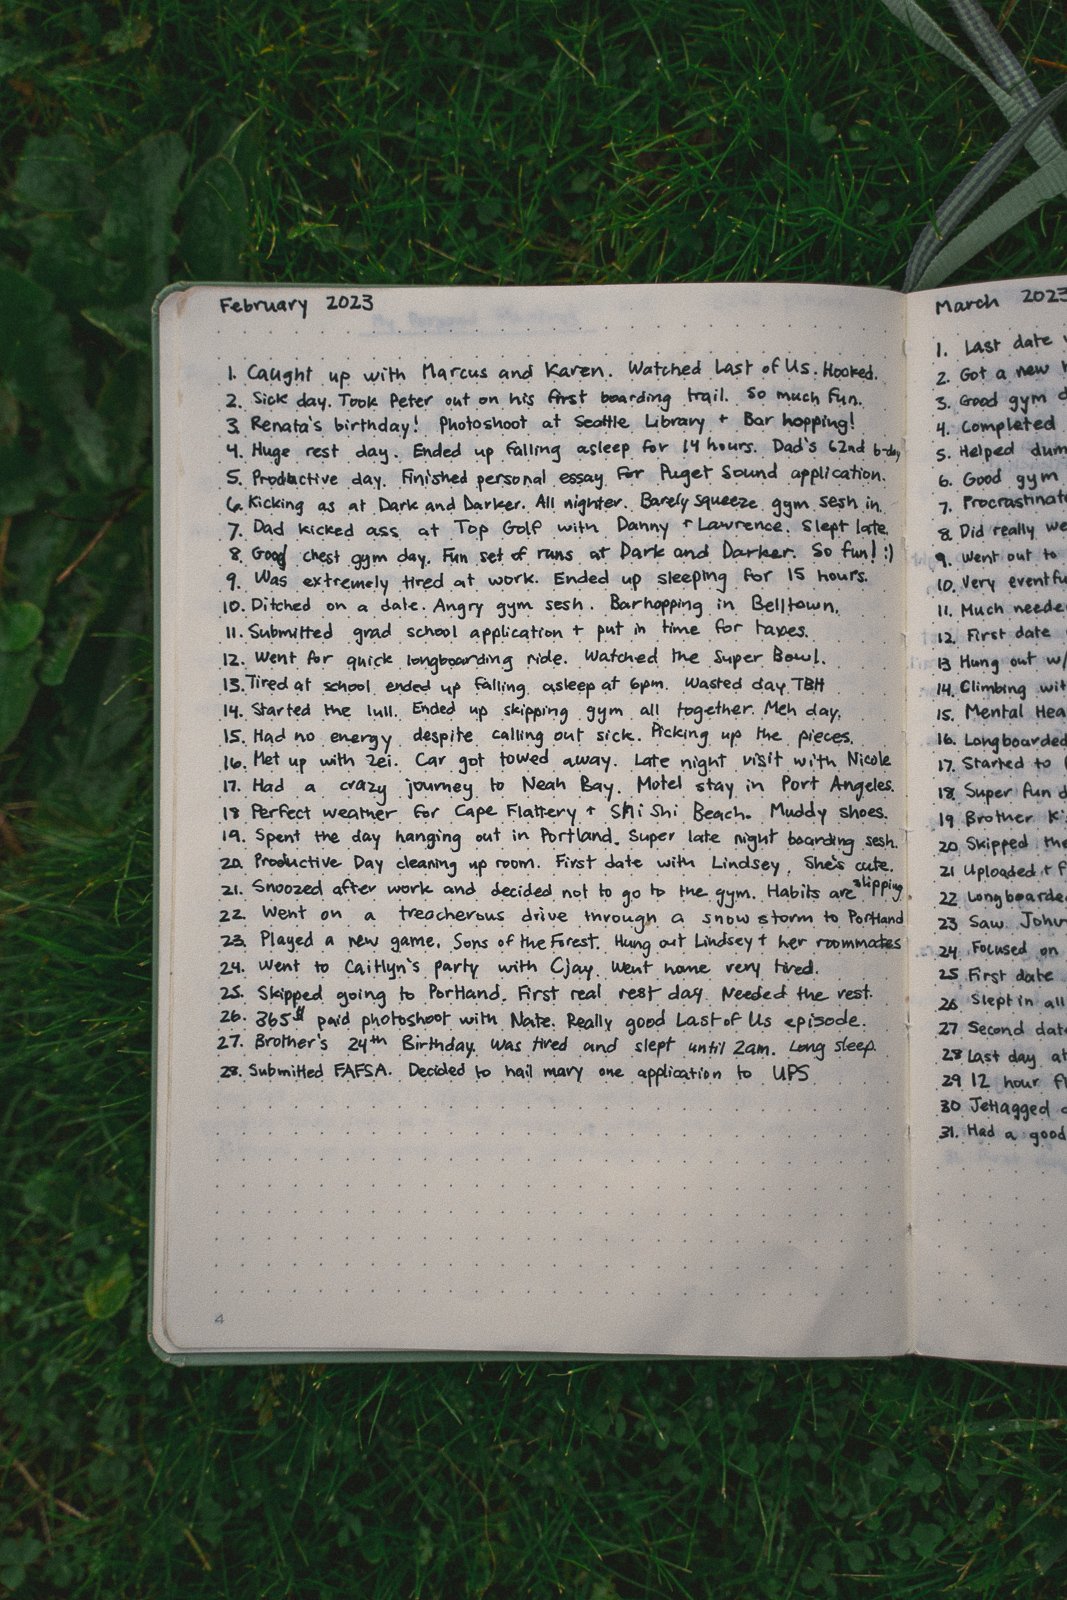 February 2023
1. Caught up with Marcus and Karen. Watched Last of Us. Hooked.
2. Sick day. Took Peter out on his first boarding trail. So much fun.
3. Renata's birthday! Photoshoot at Seattle Library + Bar hopping!
4. Huge rest day. Ended up falling asleep for 14 hours. Dad's 62nd b-day
5. Productive day. Finished personal essay for Puget Sound application.
6. Kicking as at Dark and Darker. All nighter. Barely squeeze gym sesh in.
7. Dad kicked ass at Top Golf with Danny + Lawrence. Slept late.
8. Good chest gym day. Fun set of runs at Dark and Darker. So fun! :)
9. Was extremely tired at work. Ended up sleeping for 15 hours.
10. Ditched on a date. Angry gym sesh. Barhopping in Belltown.
11. Submitted grad school application + put in time for taxes.
12. Went for quick longboarding ride. Watched the Super Bowl.
13. Tired at school ended up falling asleep at 6pm. Wasted day TBH
14. Started the lull. Ended up skipping gym all together. Meh day.
15. Had no energy despite calling out sick. Picking up the pieces.
16. Met up with Zei. Car got towed away. Late night visit with Nicole
17. Had a crazy journey to Neah Bay. Motel stay in Port Angeles.
18 Perfect weather for Cape Flattery + Shi Shi Beach. Muddy shoes.
19. Spent the day hanging out in Portland. Super late night boarding sesh.
20. Productive Day cleaning up room. First date with Lindsey. She's cute.
21. Snoozed after work and decided not to go to the gym. Habits are slipping
22. Went on a treacherous drive through a snow storm to Portland
23. Played a new game. Sons of the Forest. Hung out Lindsey + her roommates
24. Went to Caitlyn's party with Cjay. Went home very tired.
25. Skipped going to Portland. First real rest day. Needed the rest.
26. 365$ paid photoshoot with Nate. Really good Last of Us episode.
27. Brother's 24th Birthday. Was tired and slept until 2am. Long sleep.
28. Submitted FAFSA. Decided to hail mary one application to UPS
4
March 2023
1. Last date
2. Got a new
3. Good gym
4. Completed
5. Helped
6. Good gym
7. Procrastinate
8. Did really
9. Went out to
10. Very
11. Much
12. First date
13 Hung out w/
14. Climbing
15. Mental
16. Longboarded
17. Started to
18. Super fun
19 Brother
20. Skipped the
21 Uploaded +
22 Longboarded
23 Saw
24 Focused on
25 First date
26 Slept in all
27 Second date
28 Last day at
29 12 hour
30 Jetlagged
31. Had a good